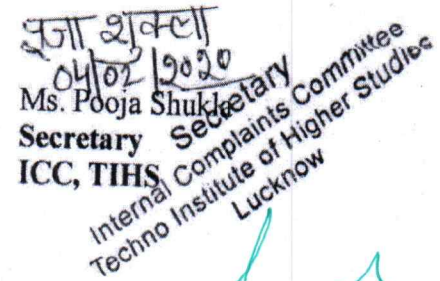 पूजा शुक्ला
04/02/2020
Ms. Pooja Shukla
Secretary
ICC, TIHS
Secretary
Internal Complaints Committee
Techno Institute of Higher Studies
Lucknow